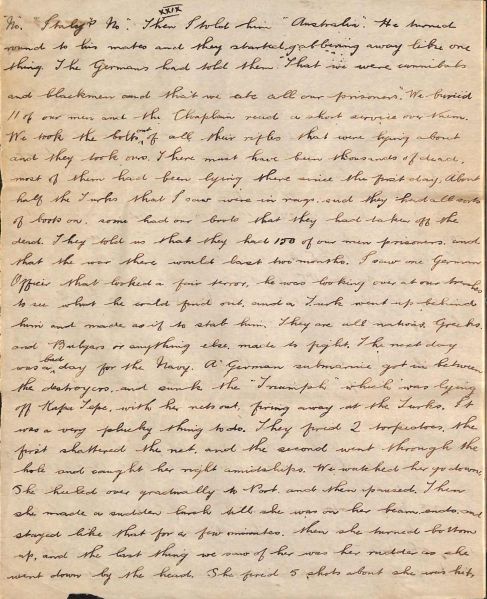 XXIX
No. "Italy?" No". Then I told him "Australia". He turned
round to his mates and they started gabbering away like one
thing. The Germans had told them "That we were cannibals
and blackmen and that we ate all our prisoners". We buried
11 of our men and the Chaplain read a short service over them.
We took the bolts out of all their rifles that were lying about
and they took ours. There must have been thousands of dead,
most of them had been lying there since the first day. About
half the Turks that I saw were in rags, and they had all sorts
of boots on, some had our boots that they had taken off the
dead. They told us that they had 150 of our men prisoners, and
that the war there would last two months. I saw one German
Officer that looked a fair terror, he was looking over at our trenches
to see what he could find out, and a Turk went up behind
him and made as if to stab him. They are all nations, Greeks,
and Bulgars or anything else, made to fight. The next day
was a bad day for the Navy. A German submarine got in between
the destroyers, and sunk the "Triumph" which was lying
off Kapa Tepe, with her nets out, firing away at the Turks. It
was a very plucky thing to do. They fired 2 torpedoes, the
first shattered the net, and the second went through the
hole and caught her right amidships. We watched her go down.
She heeled over gradually to Port, and then paused. Then
she made a sudden lurch till she was on her beam ends, and
stayed like that for a few minutes. then she turned bottom
up, and the last thing we saw of her was her rudder as she
went down by the head. She fired 5 shots about she was hit,